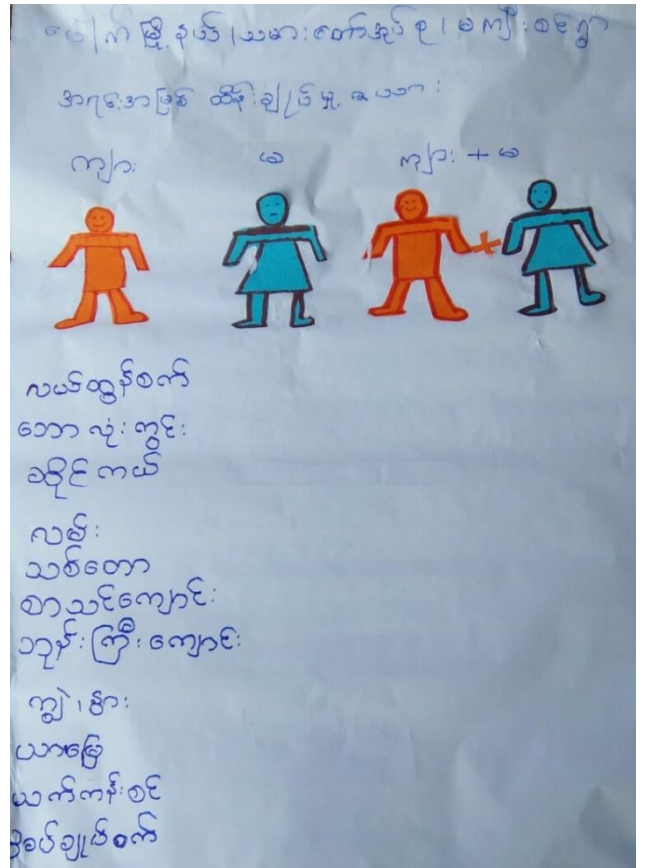 ပေါက်မြို့နယ်၊သမားတော်အုပ်စု၊မကျီးစင်ရွာ
အရင်းအမြစ် ထိန်းချုပ်မှု ဇယား
ကျား မ ကျား + မ
လယ်ထွန်စက်
ဘောလုံးကွင်း
ဆိုင်ကယ်
လမ်း
သစ်တော
စာသင်ကျောင်း
ဘုန်းကြီးကျောင်း
ကျွဲ၊နွား
ယာမြေ
ယက်ကန်းစင်
စပ်ချုပ်စက်